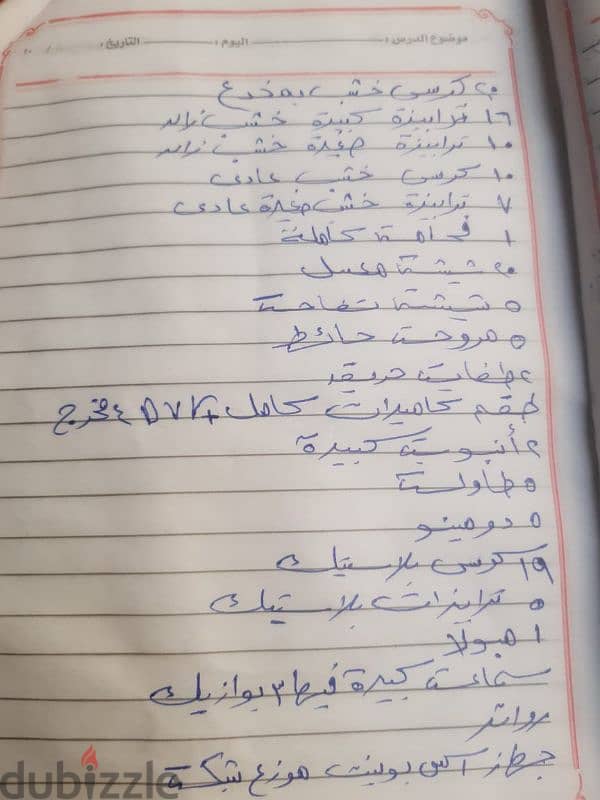 موضوع الدرس: اليوم: التاريخ:
٢٠ كرسى خشب بمخدع
١٦ ترابيزة كبيرة خشب زان
١٠ ترابيزة صغيرة خشب زان
١٠ كرسى خشب عادى
٧ ترابيزة خشب صغيرة عادى
١ فحامة كاملة
٢٠ شيشة معسل
٥ شيشة تفاحة
٥ مروحة حائط
٢ طفايت حريق
طقم كاميرات كامل + DVR ٤ مخرج
٢ أنبوبة كبيرة
٥ طاولة
٥ دومينو
١٩ كرسى بلاستيك
٥ ترابيزات بلاستيك
١ امبولا
سماعة كبيرة فيها ٣ بوازيك
رواتر
جهاز اكس بوينت موزع شبكة
dubizzle